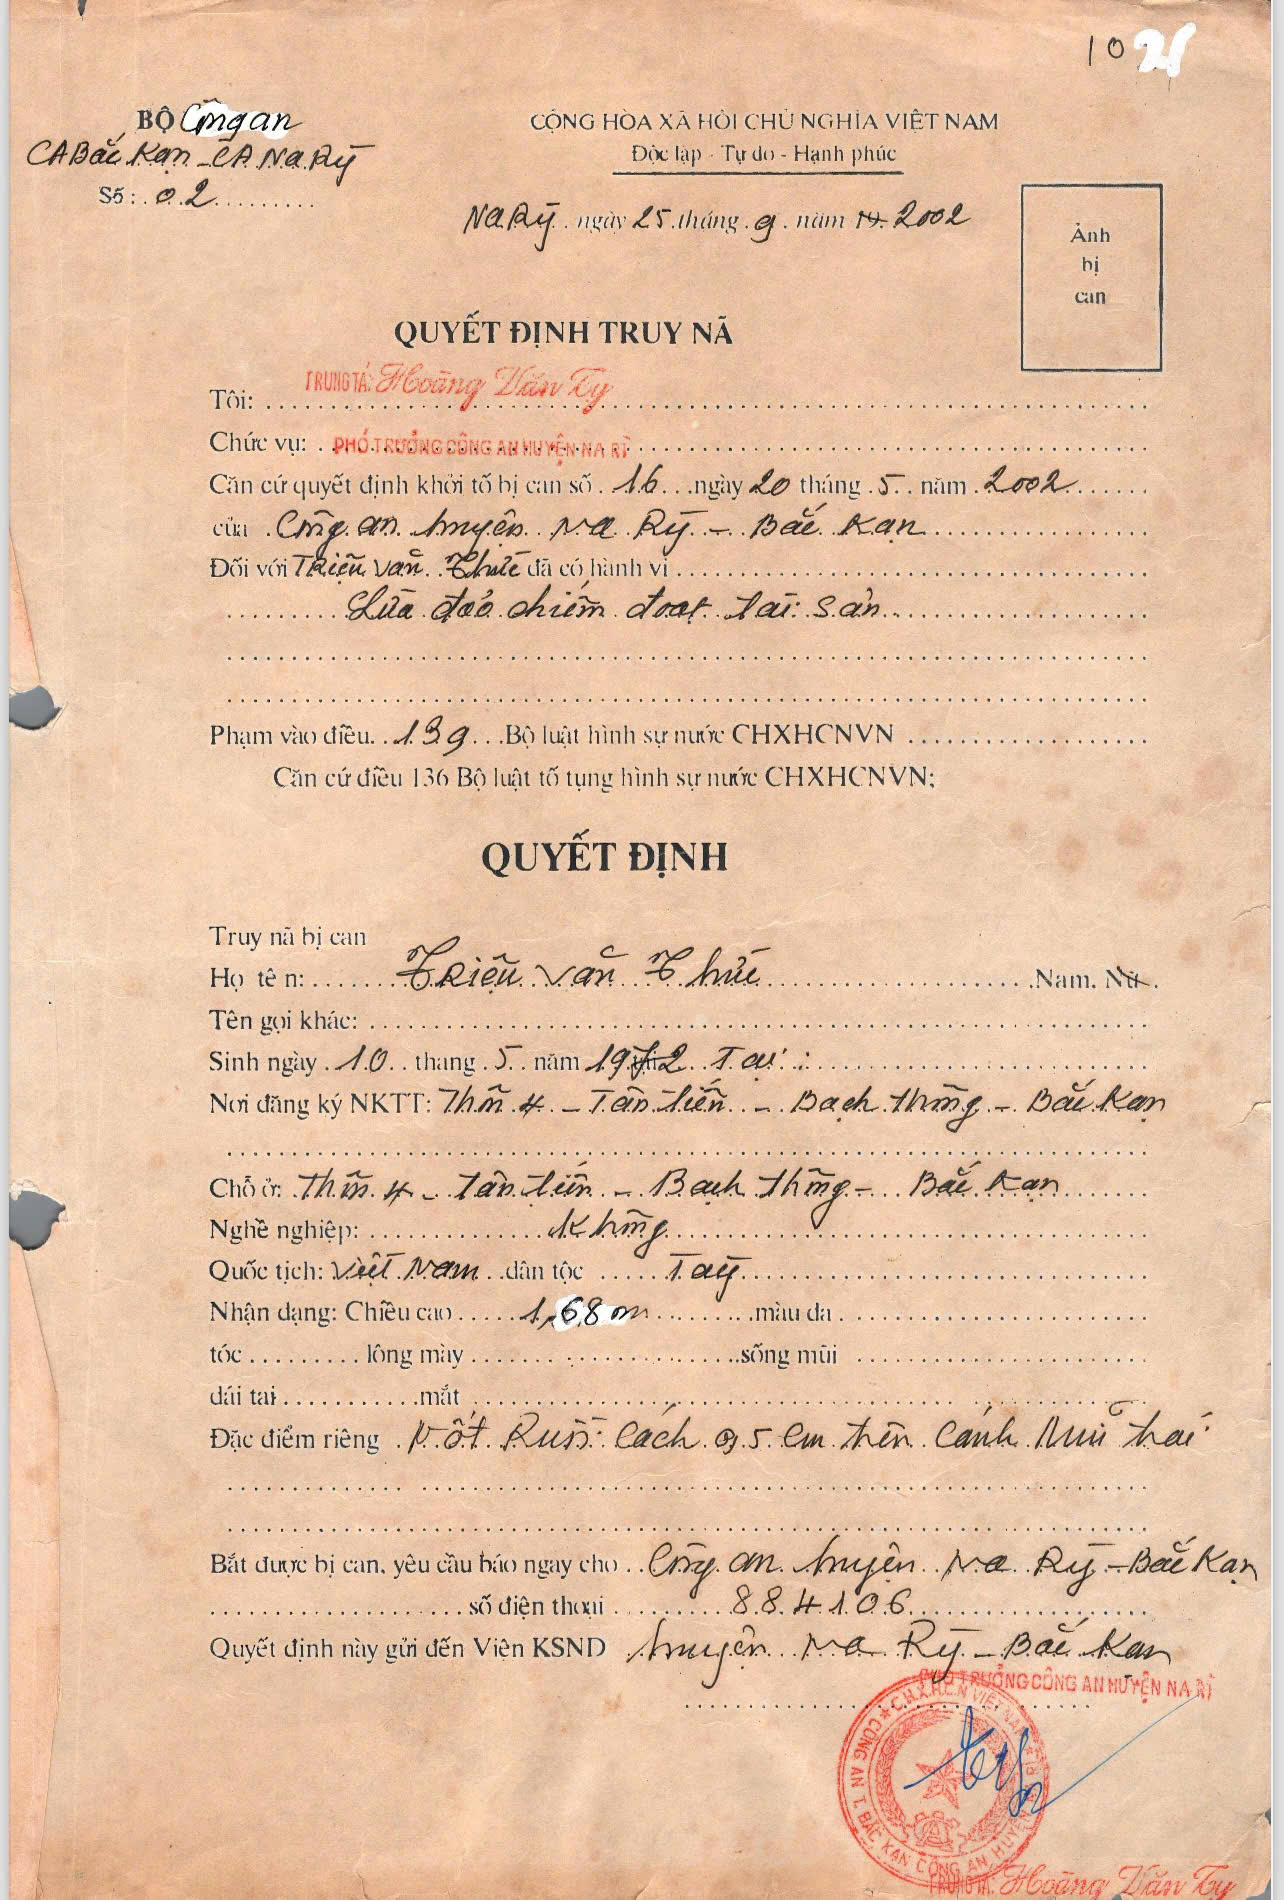 10 21
BỘ Công an
CA Bắc Kạn - CA Na Rỳ
Số: 02
CỘNG HÒA XÃ HỘI CHỦ NGHĨA VIỆT NAM
Độc lập - Tự do - Hạnh phúc
Na Rỳ ngày 25 tháng 9 năm 19 2002
Ảnh
bị
can
QUYẾT ĐỊNH TRUY NÃ
Tôi: TRUNG TÁ: Hoàng Văn Ty
Chức vụ: PHÓ TRƯỞNG CÔNG AN HUYỆN NA RÌ
Căn cứ quyết định khởi tố bị can số 16 ngày 20 tháng 5 năm 2002
của Công an huyện Na Rỳ - Bắc Kạn
Đối với Triệu Văn Thức đã có hành vi
Lừa đảo chiếm đoạt tài sản
Phạm vào điều 139 Bộ luật hình sự nước CHXHCNVN
Căn cứ điều 136 Bộ luật tố tụng hình sự nước CHXHCNVN;
QUYẾT ĐỊNH
Truy nã bị can
Họ tên: Triệu Văn Thức Nam, Nữ.
Tên gọi khác:
Sinh ngày 10 tháng 5 năm 1972 Tại:
Nơi đăng ký NKTT: Thôn 4 - Tân Tiến - Bạch Thông - Bắc Kạn
Chỗ ở: Thôn 4 - Tân Tiến - Bạch Thông - Bắc Kạn
Nghề nghiệp: Không
Quốc tịch: Việt Nam dân tộc Tày
Nhận dạng: Chiều cao 1,68m màu da
tóc lông mày sống mũi
dái tai mắt
Đặc điểm riêng Nốt Ruồi cách 0,5 cm trên cánh mũi trái
Bắt được bị can, yêu cầu báo ngay cho Công an huyện Na Rỳ - Bắc Kạn
số điện thoại 884106
Quyết định này gửi đến Viện KSND huyện Na Rỳ - Bắc Kạn
PHÓ TRƯỞNG CÔNG AN HUYỆN NA RÌ
C.H.X.H.C.N VIỆT NAM
CÔNG AN T. BẮC KẠN CÔNG AN HUYỆN
TRUNG TÁ: Hoàng Văn Ty